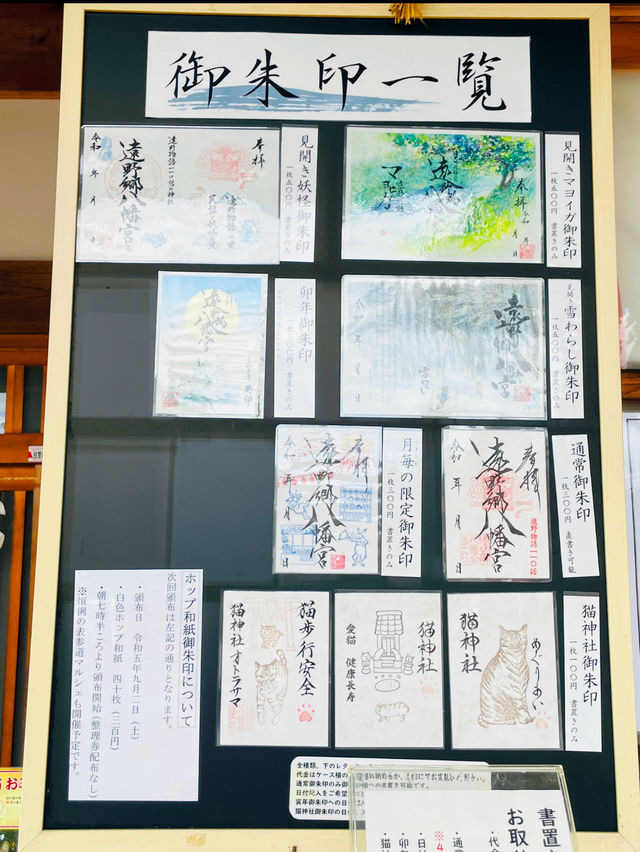 御朱印一覧
見開きマヨイガ御朱印
一枚五〇〇円　書置きのみ
奉拝
令和　年　月　日
見開き妖怪御朱印
一枚五〇〇円　書置きのみ
奉拝
遠野物語一一〇話の神社
遠野郷八幡宮
令和　年　月　日
見開き
雪わらし御朱印
一枚五〇〇円　書置きのみ
遠野郷八幡宮
令和　年　月　日
卯年御朱印
一枚三〇〇円　書置きのみ
遠野郷八幡宮
通常御朱印
一枚三〇〇円　直書き可能
奉拝
遠野物語一一〇話
遠野郷八幡宮
令和　年　月　日
月毎の限定御朱印
一枚三〇〇円　書置きのみ
奉拝
遠野郷八幡宮
令和　年　月　日
猫神社御朱印
一枚一〇〇円　書置きのみ
めぐりあい
猫神社
猫神社
愛猫　健康長寿
猫歩行安全
猫神社オトラサマ
ホップ和紙御朱印について
次回頒布は左記の通りとなります。
・頒布日　令和五年九月二日（土）
・白色ホップ和紙　四十枚（三百円）
・朝七時半ころより頒布開始（整理券配布なし）
※恒例の表参道マルシェも開催予定です。
全種類、下のレタ
代金はケース横の
通常御朱印のみ御
日付記入をご希望
寅年御朱印への日
猫神社御朱印の日
書置
お取
・代金
・通常
・日付
・卯年
・猫神